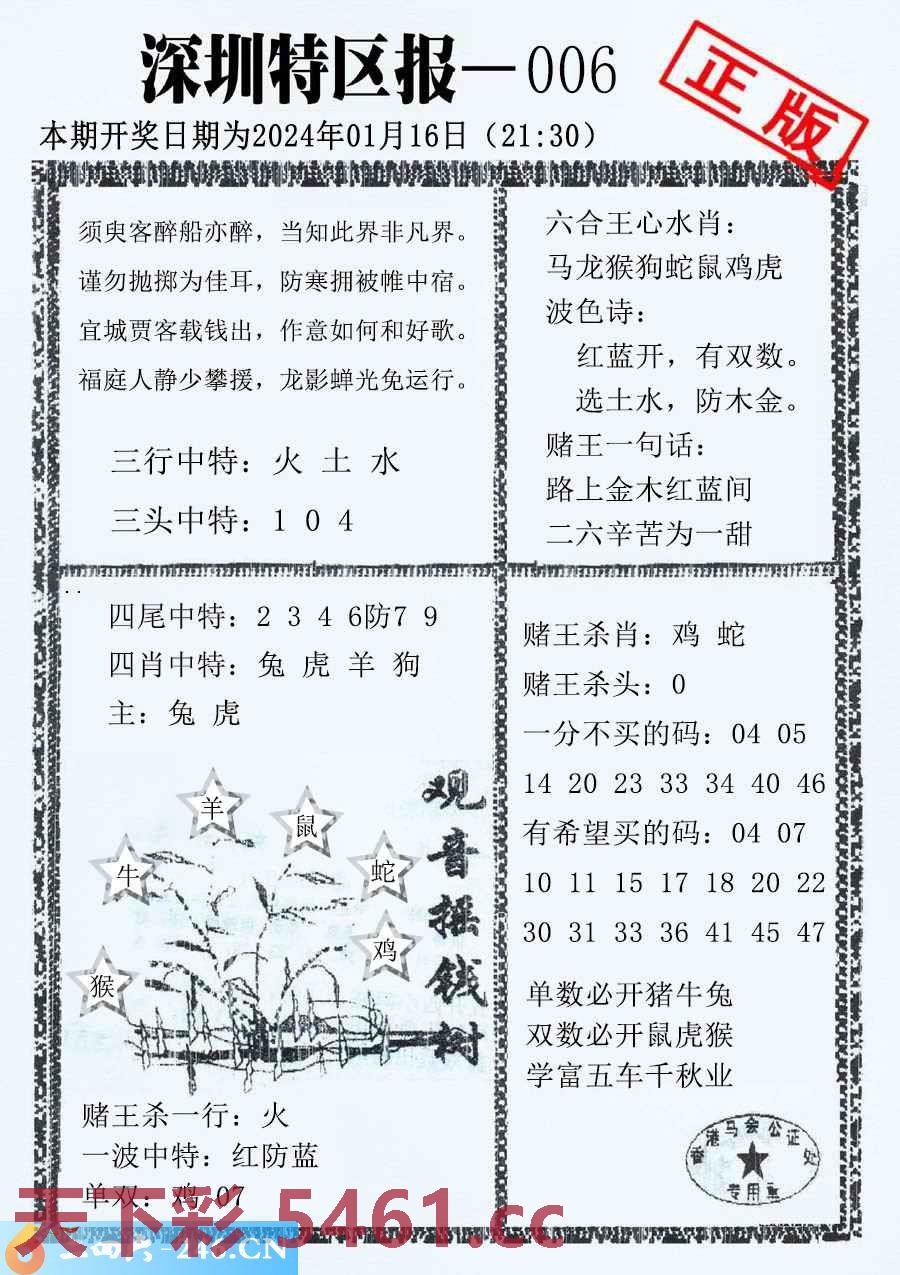 深圳特区报—006
正版
本期开奖日期为2024年01月16日（21:30）
须臾客醉船亦醉，当知此界非凡界。
谨勿抛掷为佳耳，防寒拥被帷中宿。
宜城贾客载钱出，作意如何和好歌。
福庭人静少攀援，龙影蝉光免运行。
三行中特：火 土 水
三头中特：1 0 4
六合王心水肖：
马龙猴狗蛇鼠鸡虎
波色诗：
红蓝开，有双数。
选土水，防木金。
赌王一句话：
路上金木红蓝间
二六辛苦为一甜
四尾中特：2 3 4 6防7 9
四肖中特：兔 虎 羊 狗
主：兔 虎
羊
鼠
牛
蛇
鸡
猴
观音摇钱树
赌王杀一行：火
一波中特：红防蓝
单双：鸡 07
赌王杀肖：鸡 蛇
赌王杀头：0
一分不买的码：04 05
14 20 23 33 34 40 46
有希望买的码：04 07
10 11 15 17 18 20 22
30 31 33 36 41 45 47
单数必开猪牛兔
双数必开鼠虎猴
学富五车千秋业
香港马会公证处
专用章
天下彩 5461.cc
-246.CN